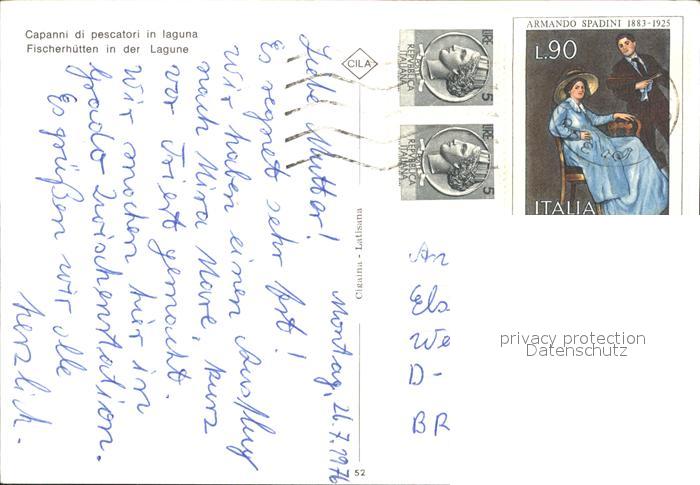 Capanni di pescatori in laguna
Fischerhütten in der Lagune
CILA
Cigaina - Latisana
52
LIRE
REPVBBLICA
ITALIANA
5
LIRE
REPVBBLICA
ITALIANA
5
ARMANDO SPADINI 1883-1925
L.90
ITALIA
Montag, 26.7.1976
Liebe Mutter!
Es regnet sehr fest!
Wir haben einen Ausflug
nach Mira Mare, kurz
vor Triest gemacht.
Wir machen hier in
Grado Zwischenstation.
Es grüßen wir alle
herzlich.
An
Els
We
D-
BR
privacy protection
Datenschutz